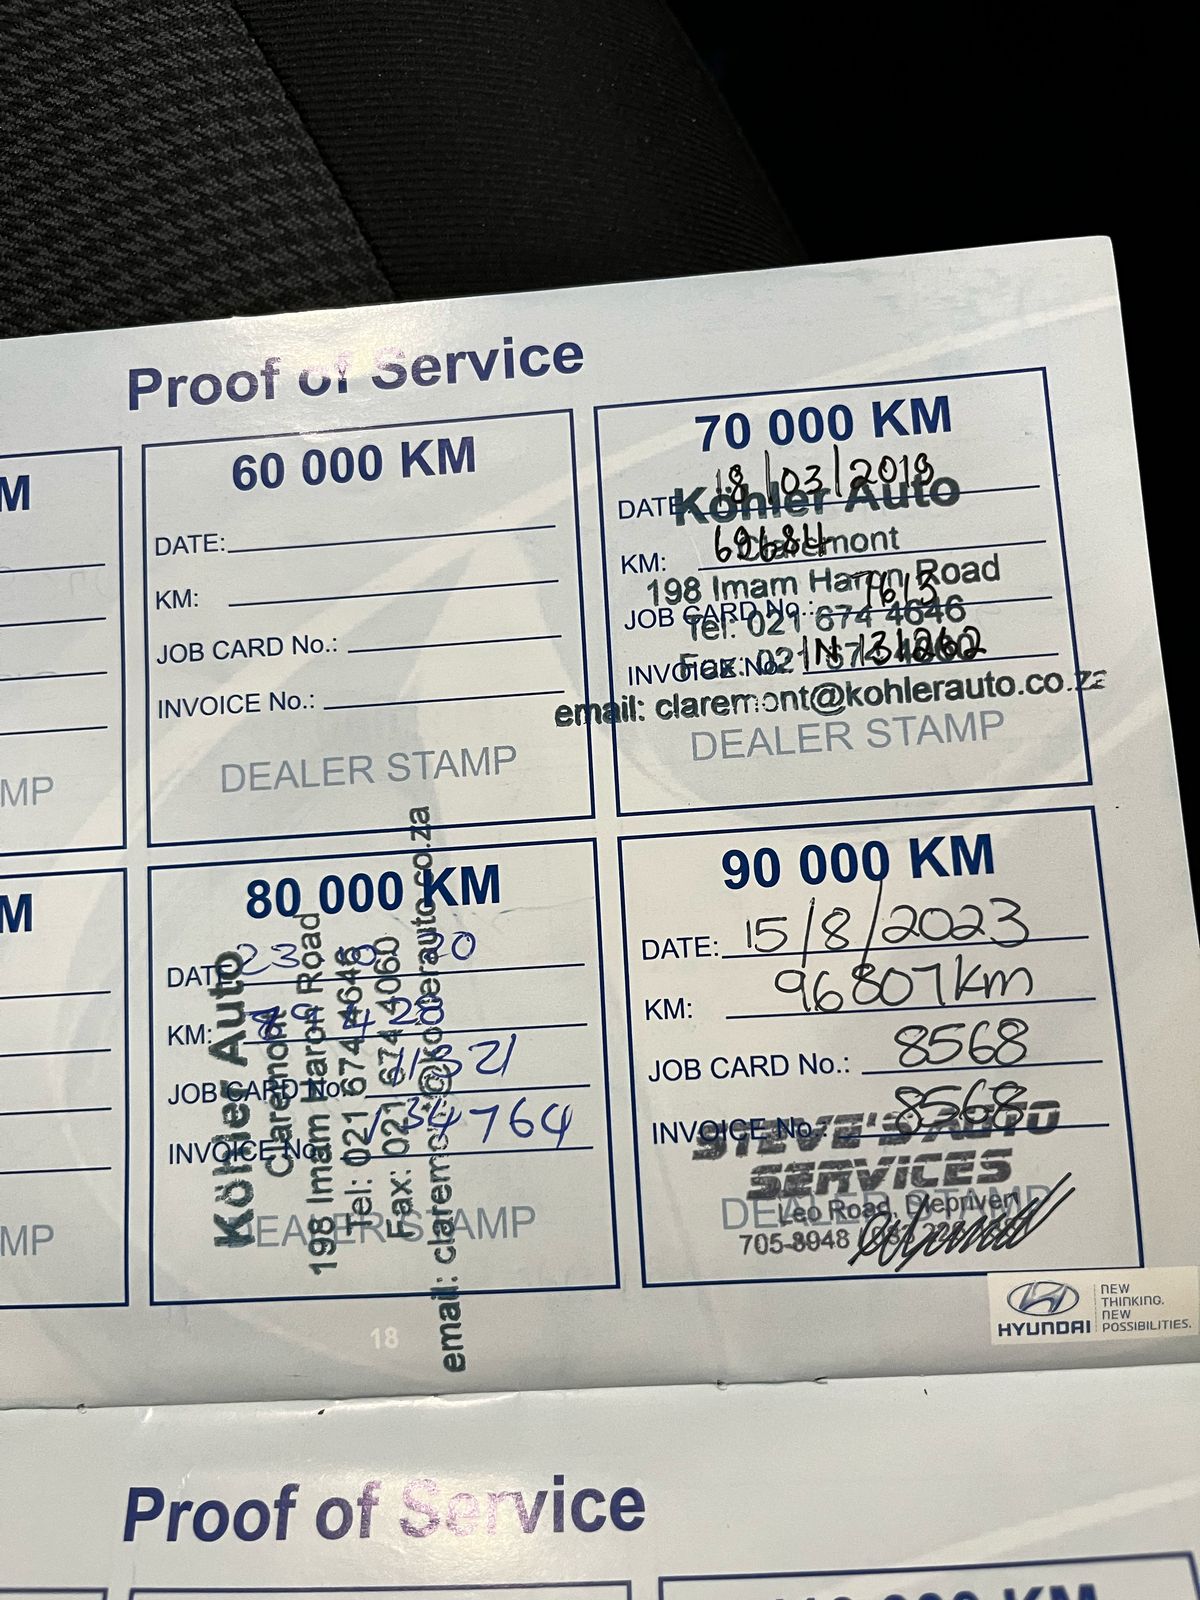 Proof of Service
M
MP
60 000 KM
DATE:
KM:
JOB CARD No.:
INVOICE No.:
DEALER STAMP
70 000 KM
DATE 18/03/2019
KM: 69684
JOB CARD No.: 7613
INVOICE No.: IN 131262
Köhler Auto
Claremont
198 Imam Haron Road
Tel: 021 674 4646
Fax: 021 674 4060
email: claremont@kohlerauto.co.za
DEALER STAMP
M
MP
80 000 KM
DATE 23 20
KM: 79 428
JOB CARD No. 11321
INVOICE No. 134764
Köhler Auto
Claremont
198 Imam Haron Road
Tel: 021 674 4646
Fax: 021 674 4060
email: claremont@kohlerauto.co.za
DEALER STAMP
90 000 KM
DATE: 15/8/2023
KM: 96807km
JOB CARD No.: 8568
INVOICE No.: 8568
STEVE'S AUTO
SERVICES
Leo Road, Diepriver
705-8948
DEALER STAMP
18
HYUNDAI
NEW
THINKING.
NEW
POSSIBILITIES.
Proof of Service
KM